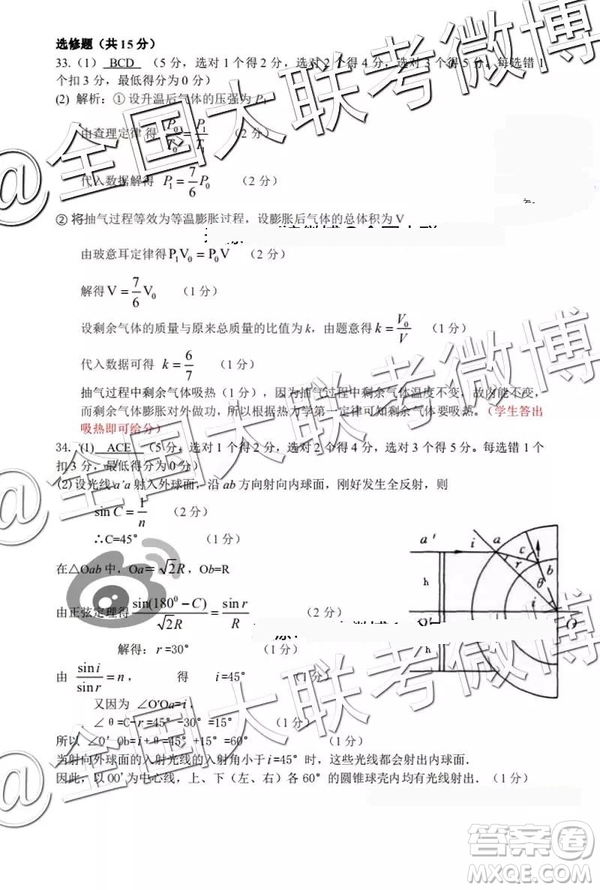 选修题（共 15 分）
33.（1） BCD （5 分，选对 1 个得 2 分，选对 2 个得 4 分，选对 3 个得 5 分。每选错 1
个扣 3 分，最低得分为 0 分）
(2) 解析：① 设升温后气体的压强为 P₁
由查理定律 得 P₀/T₀ = P₁/T₁ （2 分）
代入数据解得 P₁ = 7/6 P₀ （2 分）
② 将抽气过程等效为等温膨胀过程，设膨胀后气体的总体积为 V
由玻意耳定律得 P₁V₀ = P₀V （2 分）
解得 V = 7/6 V₀ （1 分）
设剩余气体的质量与原来总质量的比值为 k，由题意得 k = V₀/V （1 分）
代入数据可得 k = 6/7 （1 分）
抽气过程中剩余气体吸热（1 分），因为抽气过程中剩余气体温度不变，故内能不变，
而剩余气体膨胀对外做功，所以根据热力学第一定律可知剩余气体要吸热。（学生答出
吸热即可给分）
34. (1) ACE （5 分，选对 1 个得 2 分，选对 2 个得 4 分，选对 3 个得 5 分。每选错 1 个
扣 3 分，最低得分为 0 分）
(2) 设光线 a'a 射入外球面，沿 ab 方向射向内球面，刚好发生全反射，则
sin C = 1/n （2 分）
∴C=45° （1 分）
在△Oab 中，Oa=√2R，Ob=R
由正弦定理得 sin(180⁰−C)/√2R = sin r/R （2 分）
解得：r =30° （1 分）
由 sin i/sin r = n， 得 i=45° （1 分）
又因为 ∠O'Oa=i，
∠θ=C-r =45° -30° =15° （1 分）
所以 ∠O' Ob=i+θ=45° +15° =60° （1 分）
当射向外球面的入射光线的入射角小于 i =45° 时，这些光线都会射出内球面.
因此，以 OO' 为中心线，上、下（左、右）各 60° 的圆锥球壳内均有光线射出.（1 分）
a' i a
c r b
h θ
i
O
h
@全国大联考微博
@全国大联考微博
@全国大联考微博
答案圈
MXQE.COM